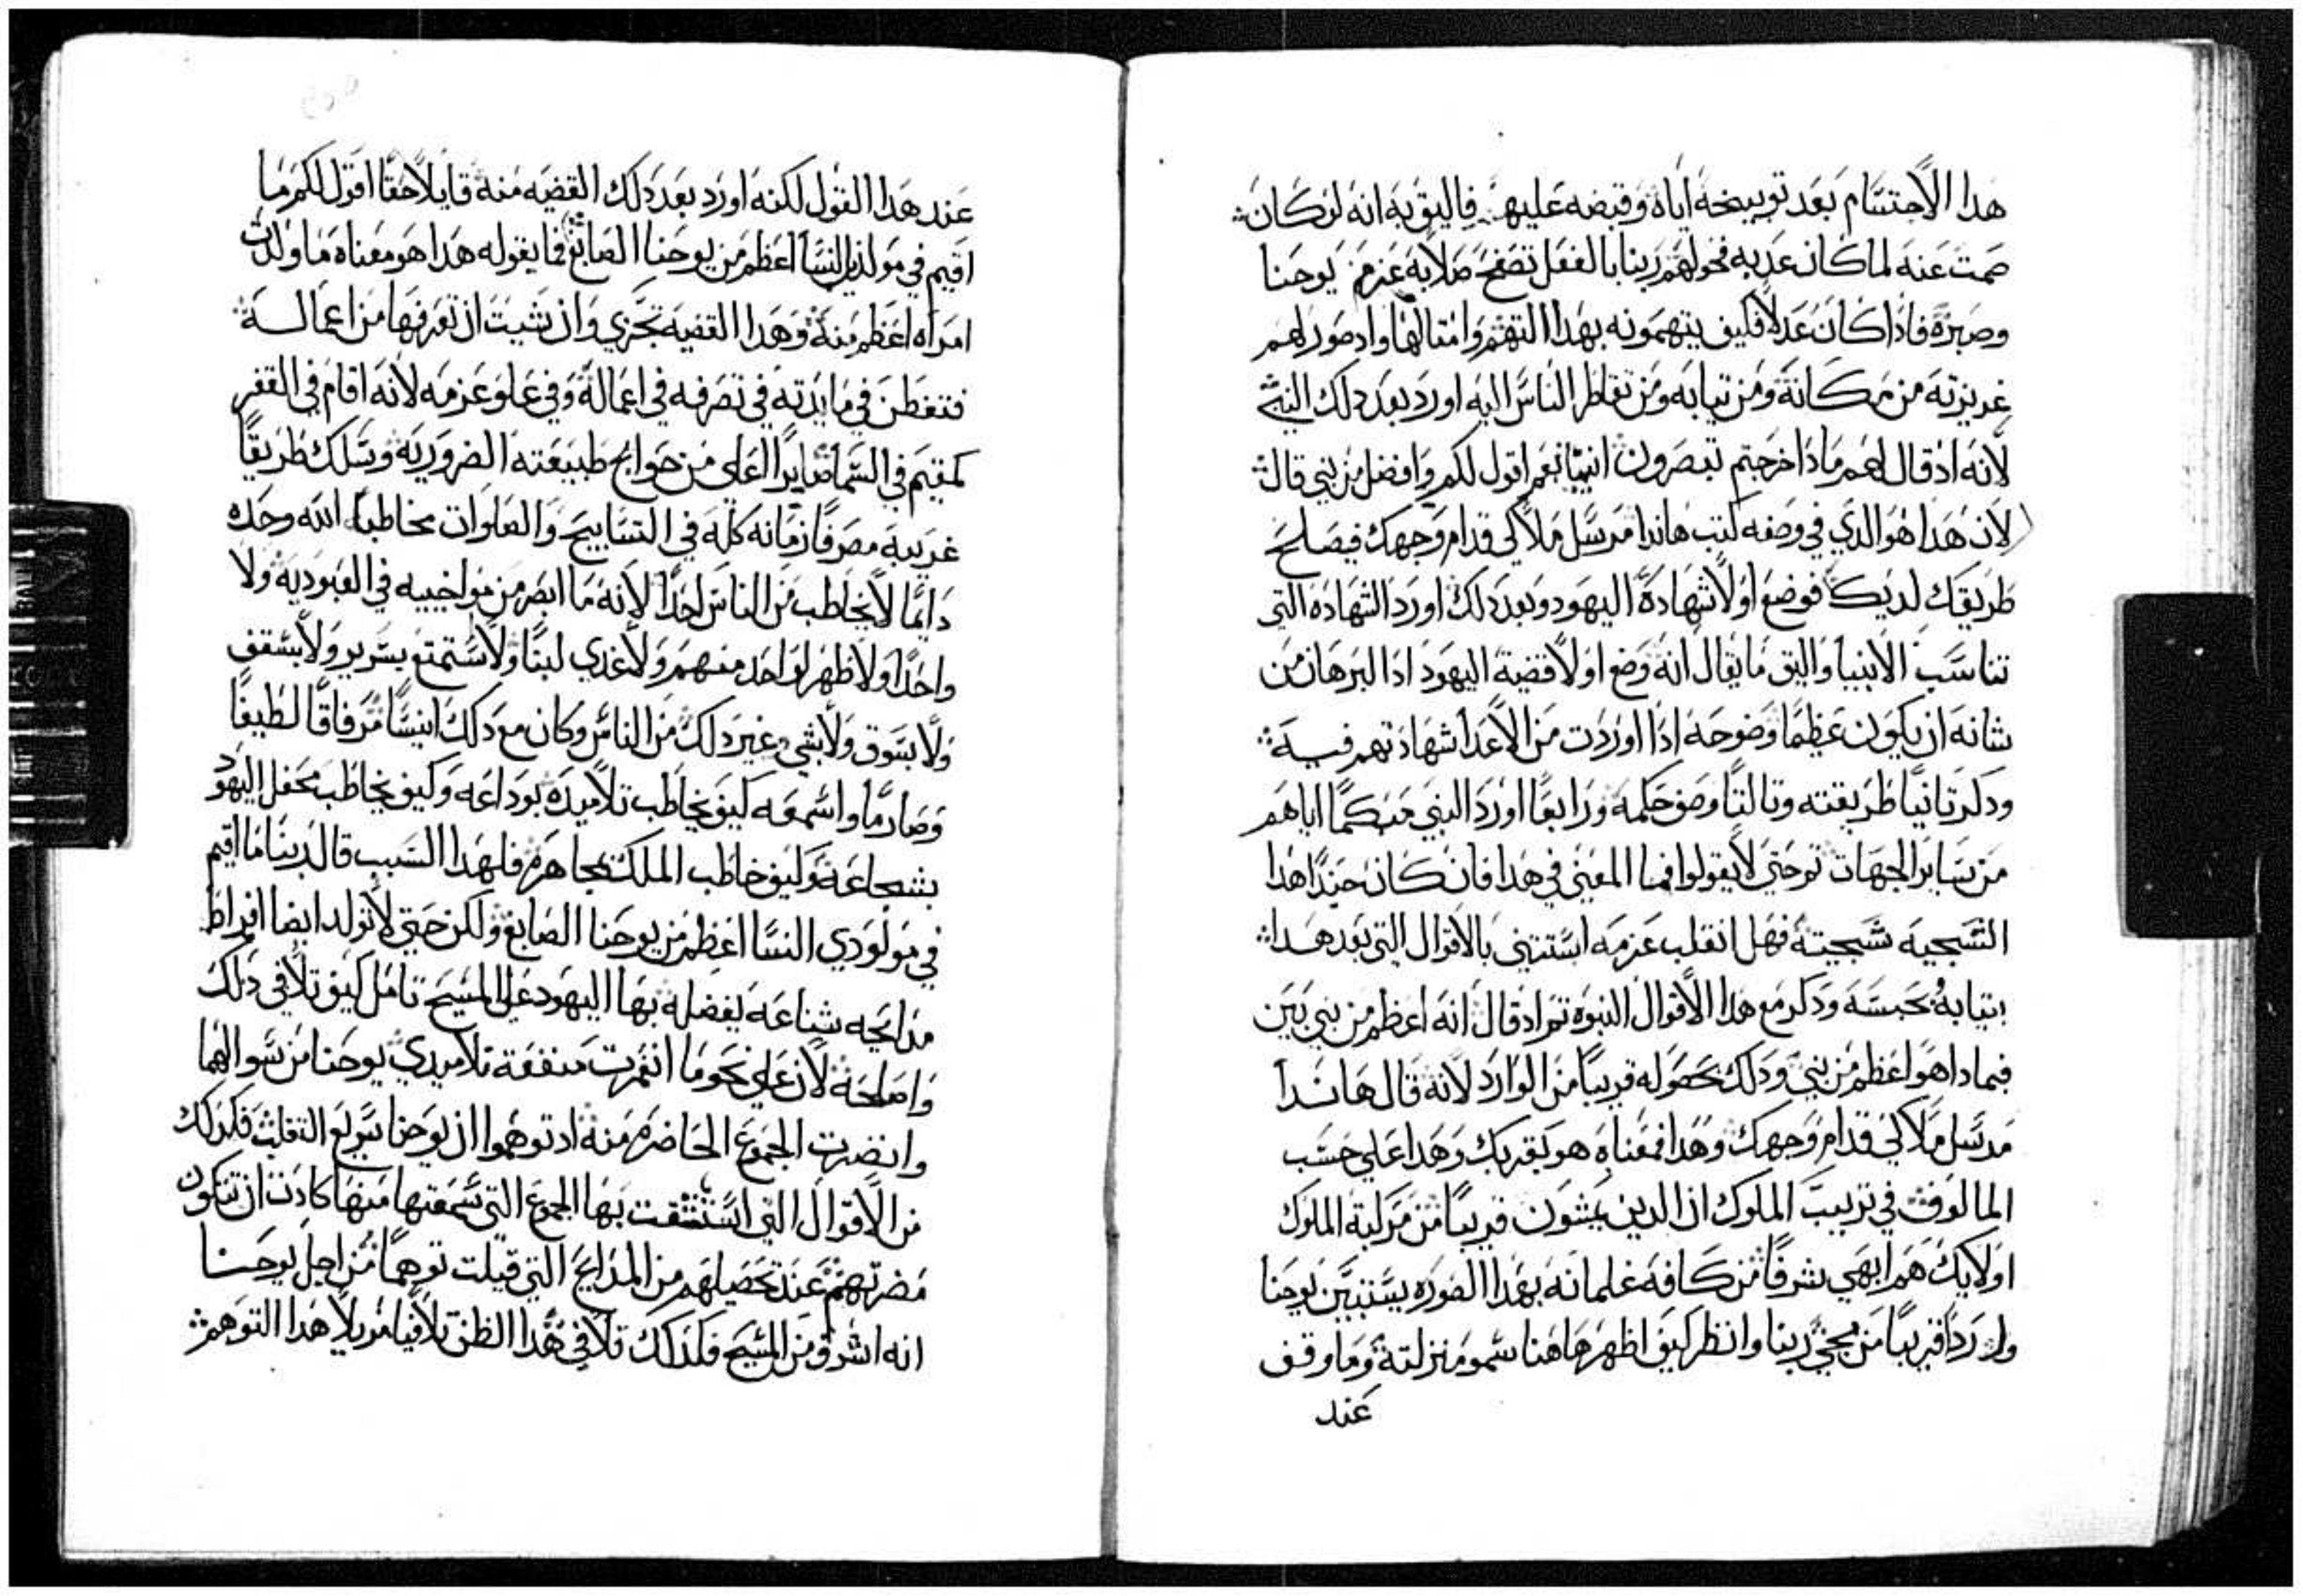 هدا الاحتسام بعد توبيخه اياه وقبضه عليه فاليق به انه لو كان
صمت عنه لما كان عديه فحولهم ربنا بالفعل تصفح صلابه عزم يوحنا
وصبره فاذا كان عدلا فكيف يتهمونه بهدا التهم وامتالها واد صور لهم
غريزته من مكانه ومن تيابه ومن تقاطر الناس اليه اورد بعد دلك النبي
لانه اد قال لهم ماذا خرجتم تبصرون انبيا نعم اقول لكم وافضل من نبي قال
لان هدا هو الدي في وصفه كتب هاندا مرسل ملاكي قدام وجهك فيصلح
طريقك لديك فوضع اولا شهادة اليهود وبعد دلك اورد الشهاده التي
تناسب الانبيا واليق ما يقال انه وضع اولا قضية اليهود ادا البرهان من
شانه ان يكون عظيما وضوحه اذا اوردت من الاعدا شهادتهم فيه
ودكر تانيا طريقته وتالتا وصف حكمه ورابعا اورد النبي مبكما اياهم
من ساير الجهات ترحتي لايقولوا فما المعني في هدا فان كان حيندا هدا
السجيه سجيته فهل انقلب عزمه استتني بالاقوال التي بعد هدا
بتيابه بحبسه ودكر مع هدا الاقوال النبوه تم اد قال انه اعظم من نبي بين
فبمادا هو اعظم من نبي ودلك بحصوله قريبا من الوارد لانه قال هاندا
مرسل ملاكي قدام وجهك وهدا فمعناه هو بقربك وهدا علي حسب
المالوف في ترتيب الملوك ان الدين يمشون قريبا من مركبة الملوك
اولايك هم ابهي شرفا من كافه غلمانه بهدا الصوره يستبين يوحنا
وارد قريبا من مجي ربنا وانظر كيف اظهر هاهنا سمو منزلته وما وقف
عند
عند هدا القول لكنه اورد بعد دلك القضيه منه قايلا حقا اقول لكم ما
اقيم في مواليد النسا اعظم من يوحنا الصابغ فما يقوله هدا هو معناه ما ولدت
امراه اعظم منه وهدا القضيه تجزي وان شيت ان تعرفها من اعماله
فتفطن في مايدته في تصرفه في اعماله وفي علو عزمه لانه اقام في القفر
كمقيم في السما صايرا اعلي من حوايج طبيعته الضروريه وسلك طريقا
غريبه مصرفا زمانه كله في التسابيح والصلوات مخاطبا الله وحده
دايما لا يخاطب من الناس احدا لانه ما ابصر من مواخييه في العبوديه ولا
واحدا ولا ظهر لواحد منهم ولا غدي لبنا ولا استمتع بسرير ولا بسقف
ولا بسوق ولا بشي غير دلك من الناس وكان مع دلك انيسا مرفاقا لطيفا
وصارما واسمعه كيف يخاطب تلاميده بوداعه وكيف يخاطب محفل اليهود
بشجاعه وكيف خاطب الملك بمجاهره فلهدا السبب قال ربنا ما اقيم
في مولودي النسا اعظم من يوحنا الصابغ ولكن حتي لا تولد ايضا افراط
مدايحه شناعه يفضله بها اليهود علي المسيح تامل كيف تلافي دلك
واصلحه لان علي نحو ما انتمرت منفعة تلاميدي يوحنا من سوالهما
وانضرت الجموع الحاضره منه اد توهموا ان يوحنا سريع التقلب فكدلك
من الاقوال التي استشفت بها الجموع التي سمعتها منها كادت ان تتكون
مضرتهم عند تحصيلهم من المدايح التي قيلت توهما من اجل يوحنا
انه اشرف من المسيح فلداك تلافي هدا الظن تلافيا مزيلا هدا التوهم